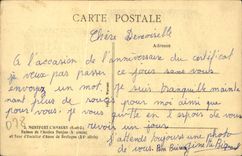 CARTE POSTALE
Chère Demoiselle
Adresse
A l'occasion de l'anniversaire du certificat
je veux pas passer ce jour sans vous
envoyez un mot, je suis tranquille maintenant
plus de rouge pour moi ainsi que
pour vous je vous quitte en espoir de vous
revoir un jour.
J'attends toujours une photo
de vous
MONTFORT-L'AMAURY (S.-et-O.)
Ruines de l'Ancien Donjon
et Tour d'Anne de Bretagne (XVe siècle)